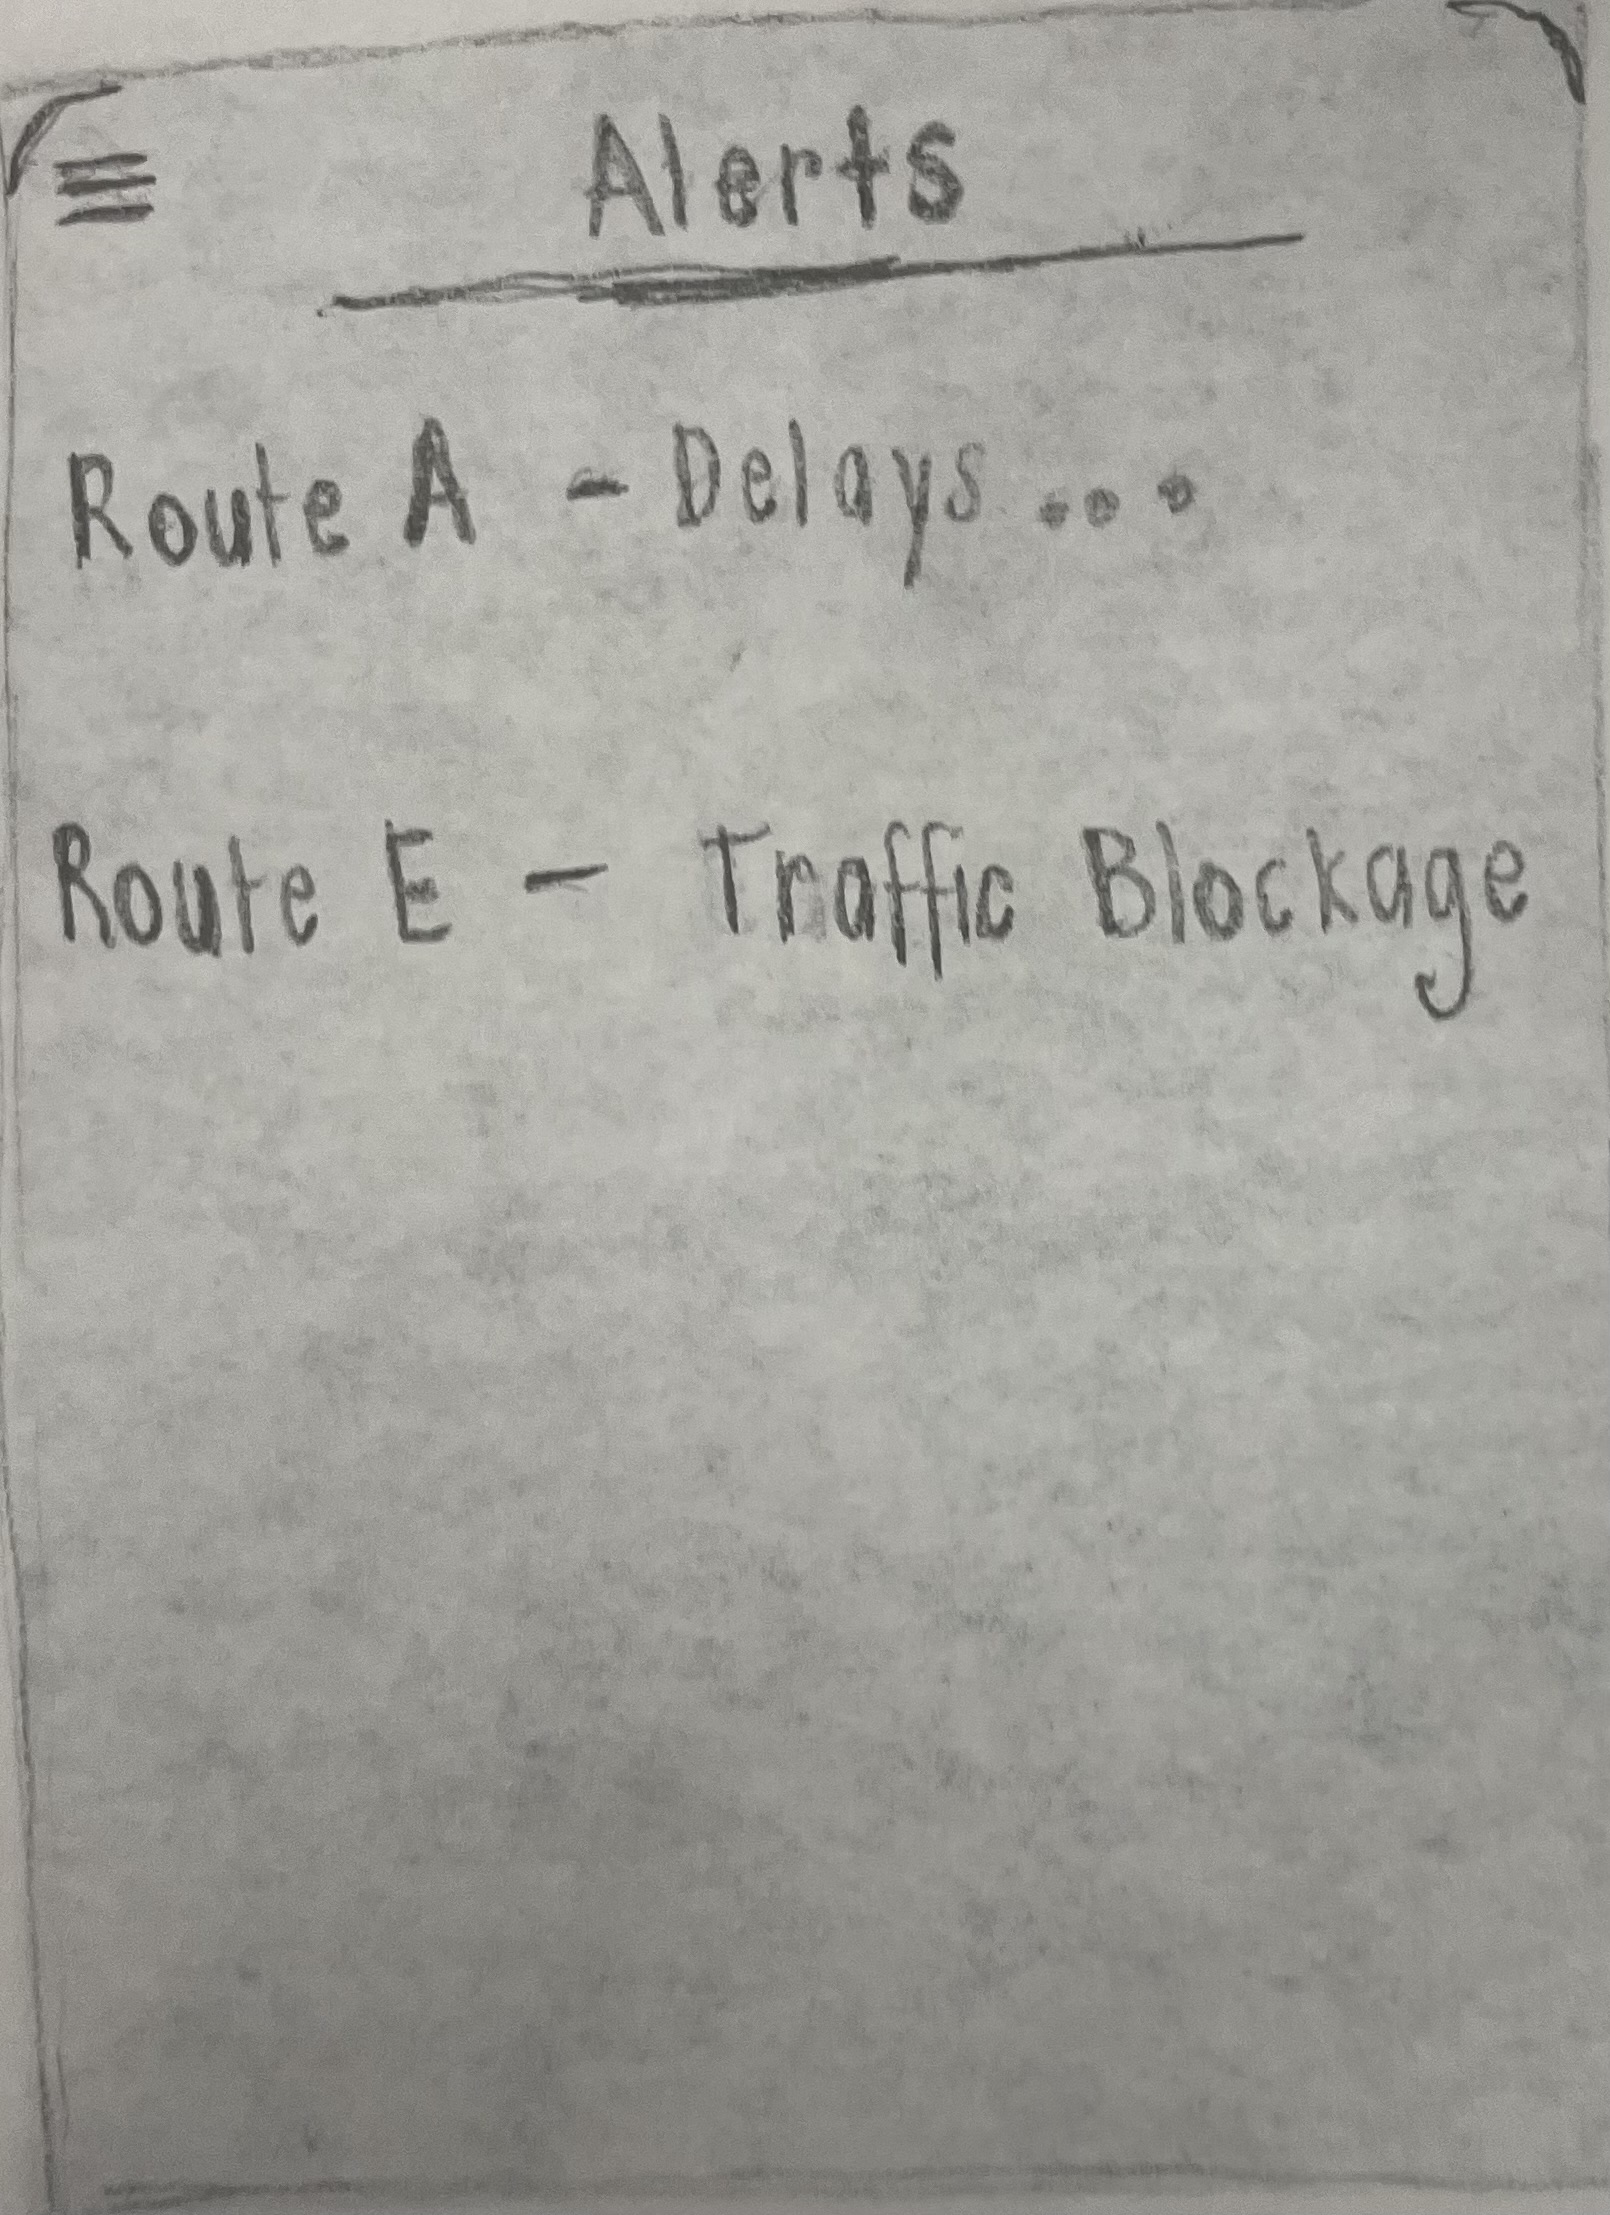 Alerts
Route A - Delays...
Route E - Traffic Blockage